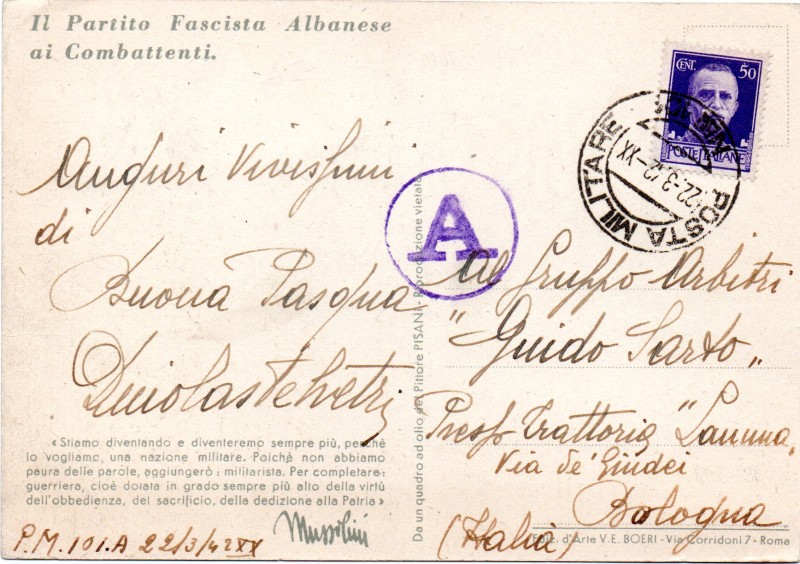 Il Partito Fascista Albanese
ai Combattenti.
CENT. 50
POSTE ITALIANE
POSTA MILITARE
22-3-42-XX
A
Auguri Vivissimi
di
Buona Pasqua
« Stiamo diventando e diventeremo sempre più, perchè
lo vogliamo, una nazione militare. Poichè non abbiamo
paura delle parole, aggiungerò : militarista. Per completare:
guerriera, cioè dotata in grado sempre più alto della virtù
dell'obbedienza, del sacrificio, della dedizione alla Patria »
Mussolini
P.M. 101.A 22/3/42 XX
Da un quadro ad olio del Pittore PISANI - Riproduzione vietata
Al Gruppo Arbitri
"Guido Sarto„
Presso Trattoria "
Via de' Giudei
Bologna
(Italia)
Ediz. d'Arte V. E. BOERI - Via Corridoni 7 - Roma